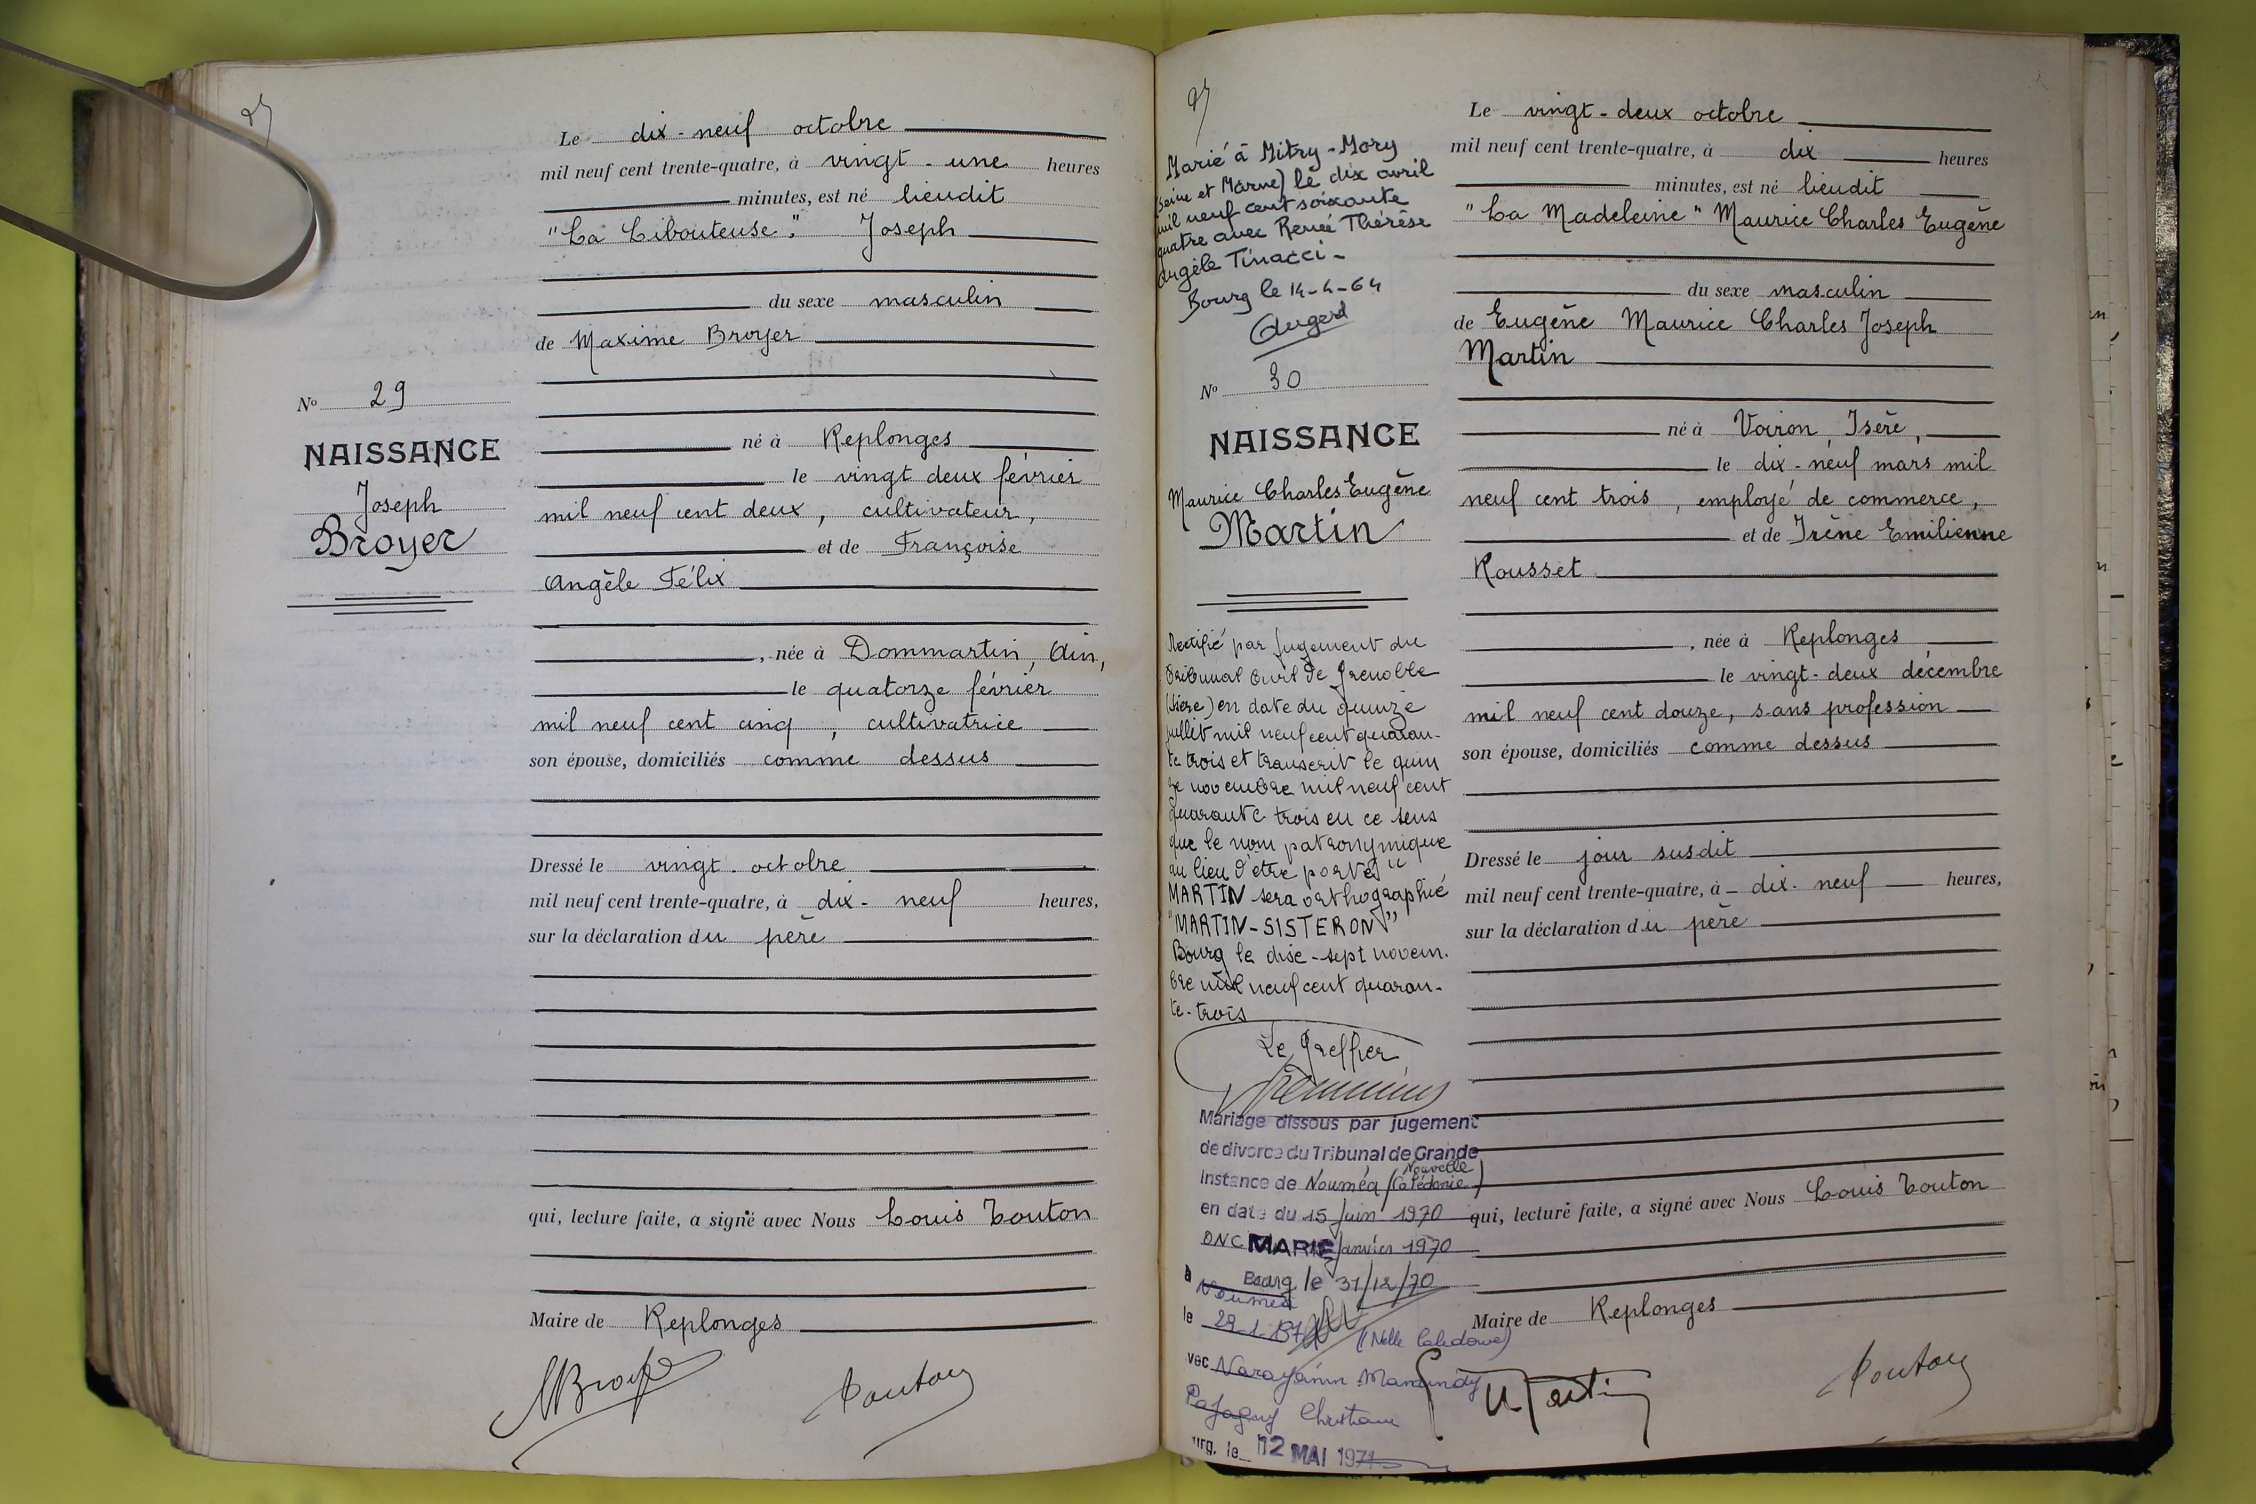 Le dix-neuf octobre
mil neuf cent trente-quatre, à vingt-une heures
minutes, est né lieudit
"La Libouteuse". Joseph
du sexe masculin
de Maxime Broyer
né à Replonges
le vingt deux février
mil neuf cent deux, cultivateur,
et de Françoise
Angèle Félix
, née à Dommartin, Ain,
le quatorze février
mil neuf cent cinq, cultivatrice
son épouse, domiciliés comme dessus
Dressé le vingt octobre
mil neuf cent trente-quatre, à dix-neuf heures,
sur la déclaration du père
qui, lecture faite, a signé avec Nous Louis Touton
Maire de Replonges
No 29
NAISSANCE
Joseph
Broyer
Marié à Mitry-Mory
(Seine et Marne) le dix avril
mil neuf cent soixante
quatre avec Renée Thérèse
Angèle Tinacci-
Bourg le 14-4-64
No 30
NAISSANCE
Maurice Charles Eugène
Martin
Rectifié par jugement du
Tribunal Civil de Grenoble
(Isère) en date du quinze
juillet mil neuf cent quaran-
te trois et transcrit le quin
ze novembre mil neuf cent
quarante trois en ce sens
que le nom patronymique
au lieu d'être porté "
MARTIN sera orthographié
"MARTIN-SISTERON"
Bourg le dix-sept novem-
bre mil neuf cent quaran-
te-trois
Le Greffier
Mariage dissous par jugement
de divorce du Tribunal de Grande
Instance de Nouméa (Nouvelle
Calédonie)
en date du 15 Juin 1970
ONC MARIE Janvier 1970
Bourg le 31/12/70
à Nouméa
le 29.1.
(Nelle Calédonie)
vec Narayanin
Christiane
urg, le 12 MAI 1971
Le vingt-deux octobre
mil neuf cent trente-quatre, à dix heures
minutes, est né lieudit
"La Madeleine" Maurice Charles Eugène
du sexe masculin
de Eugène Maurice Charles Joseph
Martin
né à Voiron, Isère,
le dix-neuf mars mil
neuf cent trois, employé de commerce,
et de Irène Emilienne
Rousset
, née à Replonges
le vingt-deux décembre
mil neuf cent douze, sans profession
son épouse, domiciliés comme dessus
Dressé le jour susdit
mil neuf cent trente-quatre, à dix-neuf heures,
sur la déclaration du père
qui, lecture faite, a signé avec Nous Louis Touton
Maire de Replonges